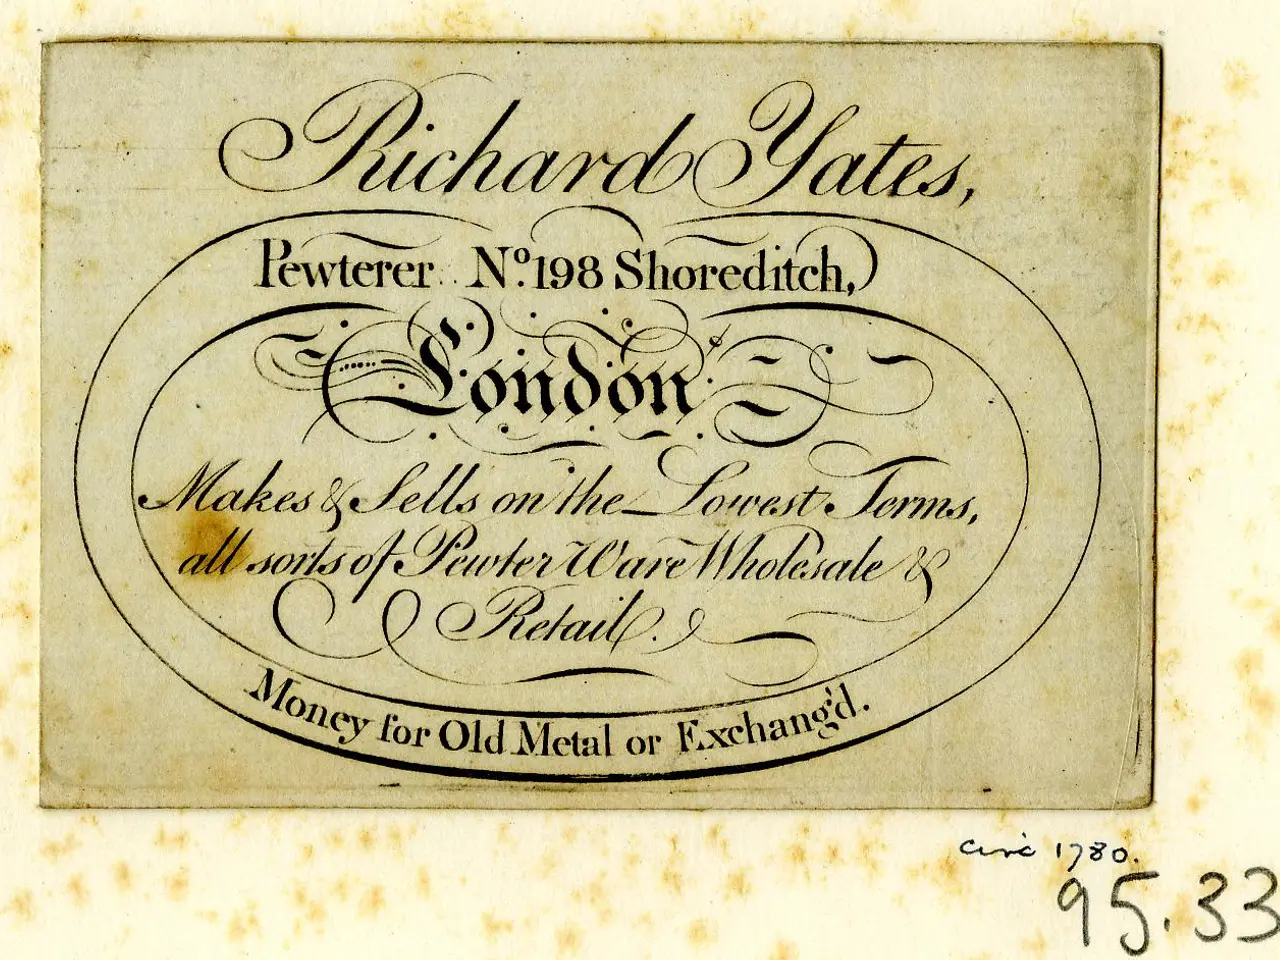 Richard Yates,
Pewterer Nº. 198 Shoreditch,
London
Makes & Sells on the Lowest Terms,
all sorts of Pewter Ware Wholesale &
Retail.
Money for Old Metal or Exchang'd.
circ 1780.
95.33